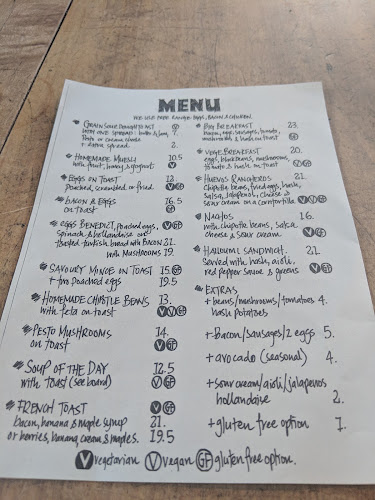 MENU
WE USE FREE RANGE EGGS, BACON & CHICKEN.
GRAIN SOUR DOUGH TOAST
with one spread: butter & jam, 7.
+ extra spread 2.
HOMEMADE MUESLI 10.5
with fruit, honey & yoghurt V
EGGS ON TOAST 12.
Poached, scrambled or fried. V GF
BACON & EGGS 16.5
on toast GF
EGGS BENEDICT, poached eggs, V GF
spinach & hollandaise on
toasted turkish bread with BACON 21.
with MUSHROOMS 19.
SAVOURY MINCE ON TOAST 15. GF
+ two poached eggs 19.5
HOMEMADE CHIPOTLE BEANS 13.
with feta on toast V V GF
PESTO MUSHROOMS 14.
on toast V GF
SOUP OF THE DAY 12.5
with toast (see board) V GF
FRENCH TOAST V GF
bacon, banana & maple syrup 21.
or berries, banana cream & maple. 19.5
BIG BREAKFAST 23.
bacon, egg, sausages, tomato,
mushrooms & hash on toast GF
VEGE BREAKFAST 20.
eggs, black beans, mushrooms,
tomato & hash on toast V GF
HUEVOS RANCHEROS 21.
chipotle beans, fried eggs, hash,
salsa, jalapenos, cheese &
sour cream on a corn tortilla V GF
NACHOS 16.
with chipotle beans, salsa,
cheese & sour cream. V GF
HALLOUMI SANDWICH. 21.
served with hash, aioli,
red pepper sauce & greens V GF
EXTRAS
+ beans/mushrooms/tomatoes 4.
hash potatoes
+ bacon/sausages/2 eggs 5.
+ avocado (seasonal) 4.
+ sour cream/aioli/jalapenos
hollandaise 2.
+ gluten free option 1.
V vegetarian V vegan GF gluten free option.